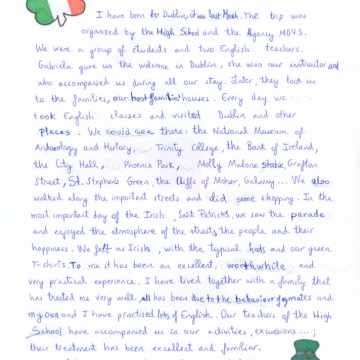 I have been to Dublin, it was last March. The trip was
organized by the High School and the Agency MOYS.
We were a group of students and two English teachers.
Gabriela gave us the welcome in Dublin, she was our instructor and
who accompanied us during all our stay. Later, they took us
to the families, our host families houses. Every day we
took English classes and visited Dublin and other
places. We could see there: the National Museum of
Archaeology and History, Trinity College, the Bank of Ireland,
the City Hall, Phoenix Park, Molly Malone statue, Grafton
Street, St. Stephen's Green, the Cliffs of Moher, Galway... We also
walked along the important streets and did some shopping. In the
most important day of the Irish, Saint Patrick's, we saw the parade
and enjoyed the atmosphere of the streets, the people and their
happiness. We felt as Irish, with the typical hats and our green
T-shirts. To me it has been an excellent, worthwhile and
very practical experience. I have lived together with a family that
has treated me very well, all has been due to the behaviour of my mates and
my own and I have practised lots of English. Our teachers of the High
School have accompanied us in our activities, excursions...;
their treatment has been excellent and familiar.